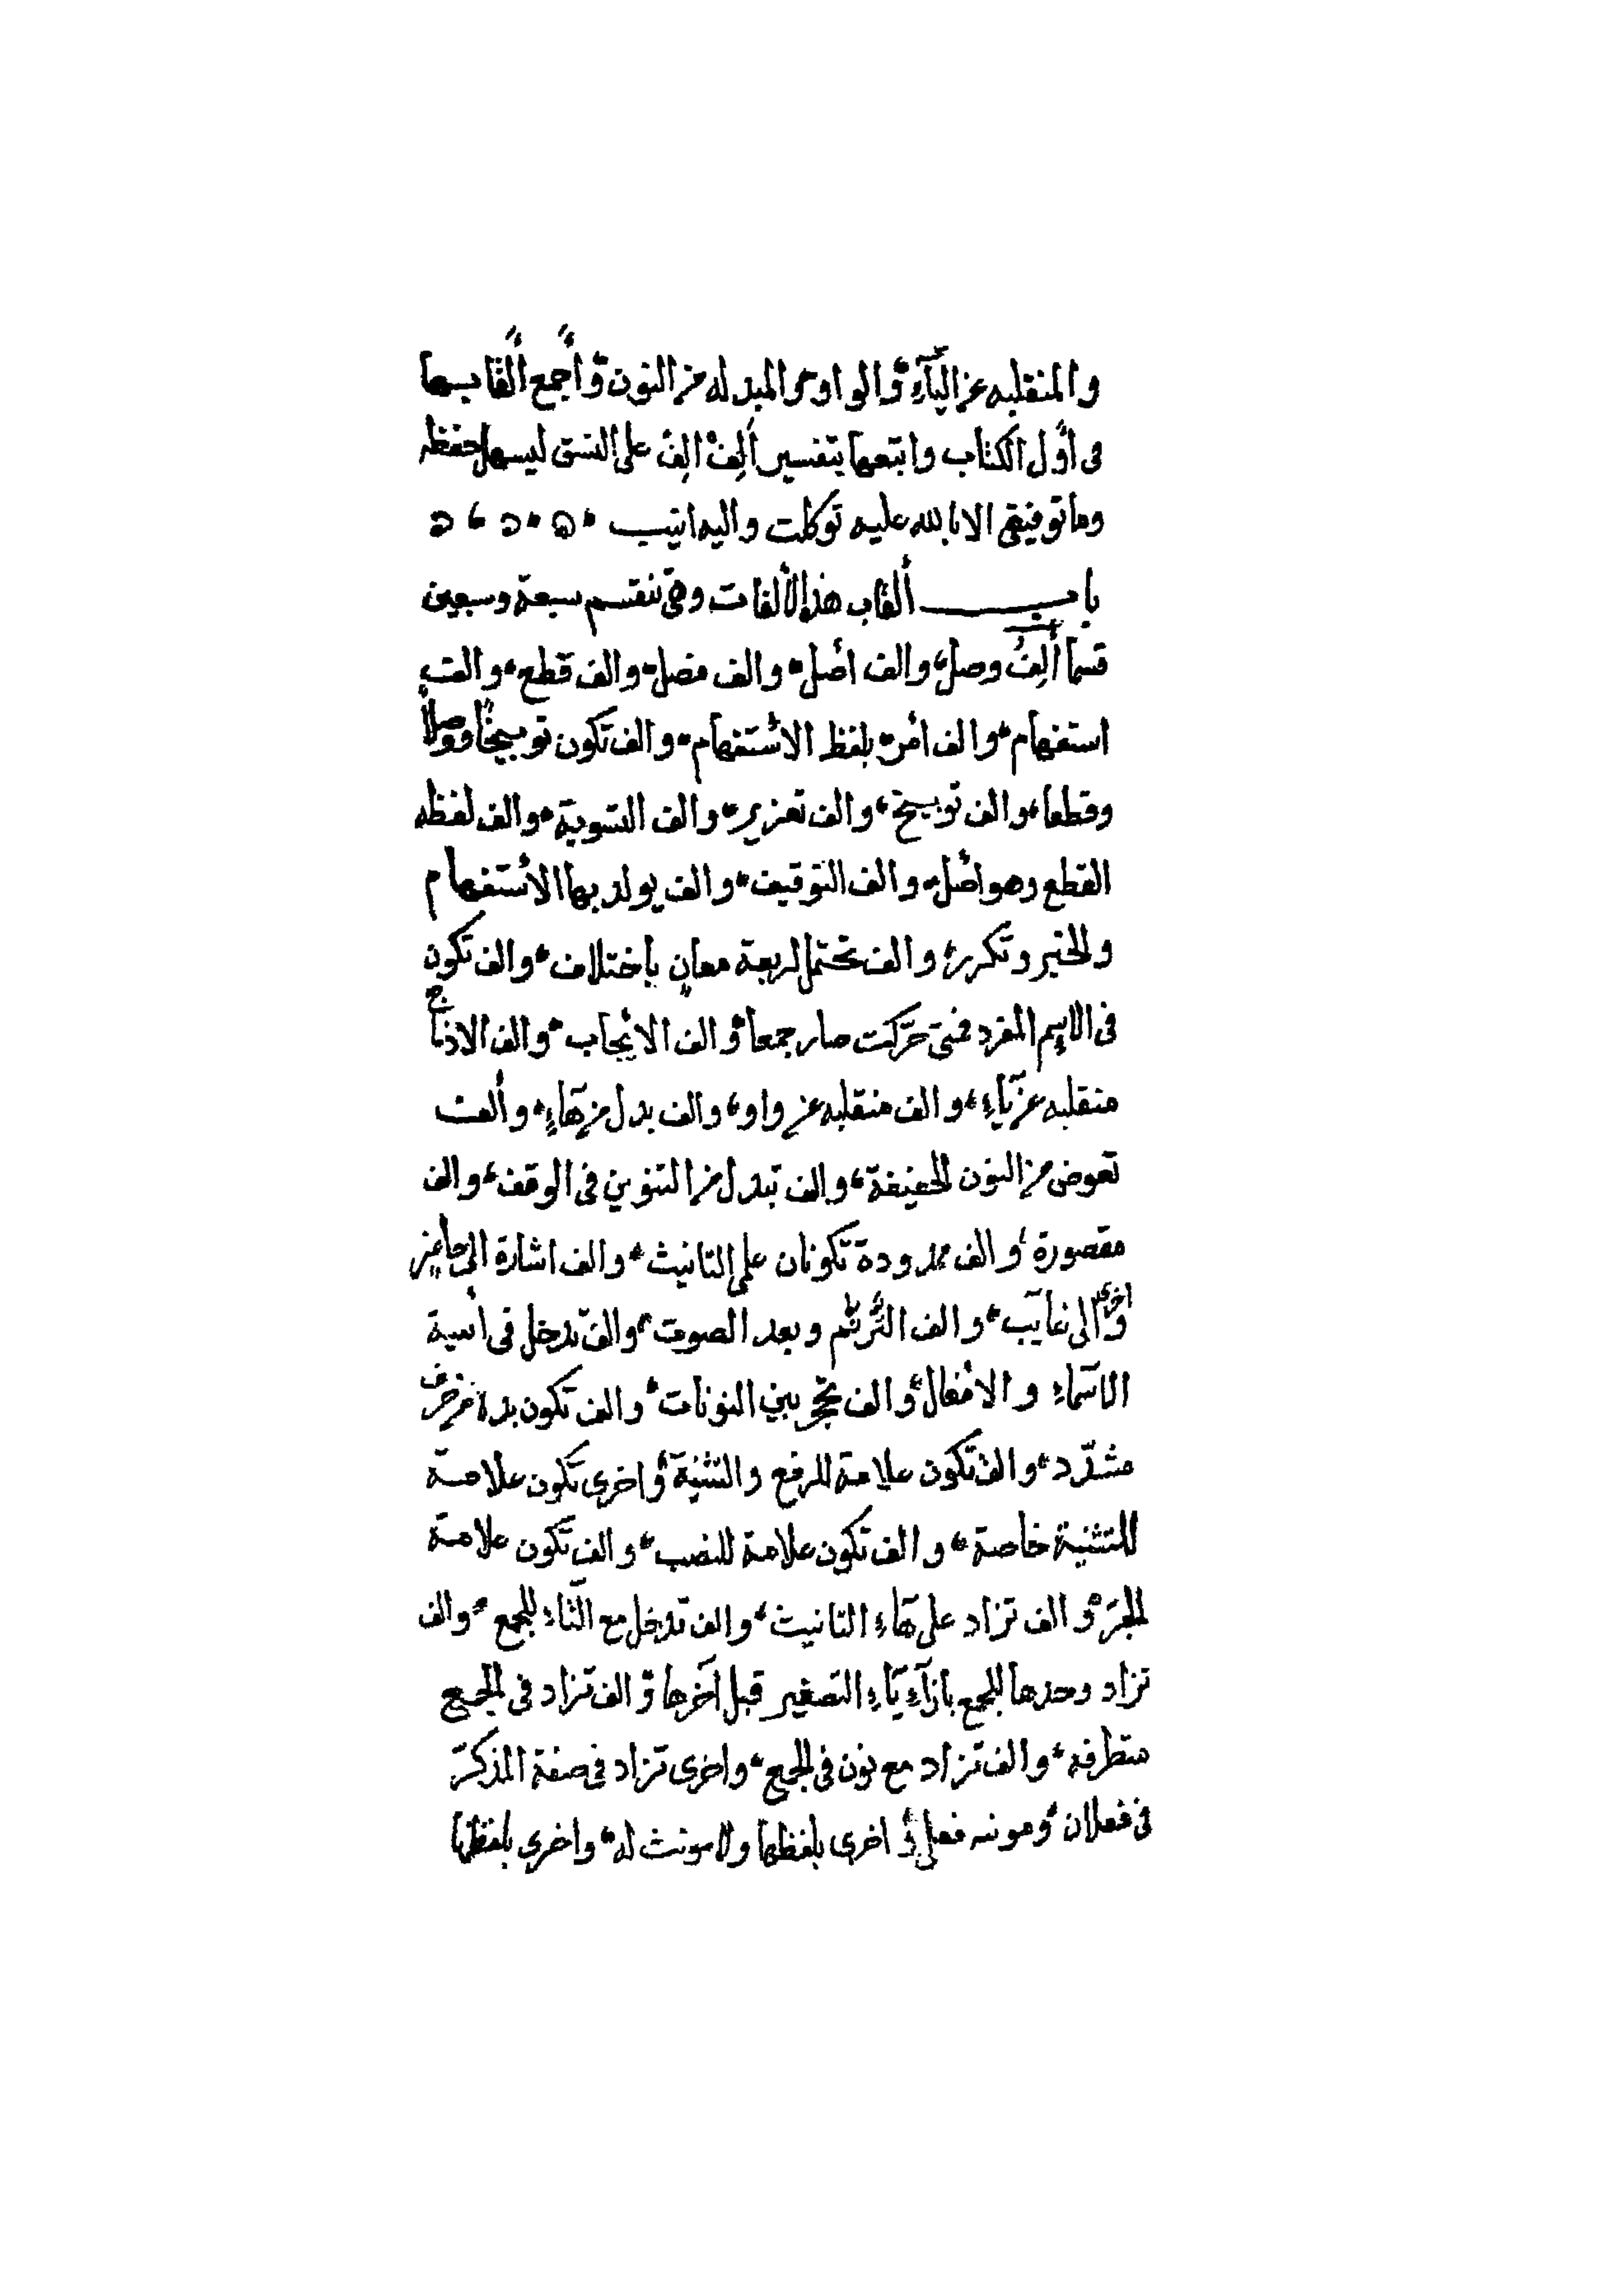 والمنقلبه عن اليآء والواو والمبدله من النون وأجمع ألقابها
فى اوّل الكتاب واتبعها بتفسير ألِفٍ الِفٍ على النسق ليسهل حفظه
وما توفيقى الا بالله عليه توكلت واليه انيب
باب ألقاب هذه الألفات وهى تنقسم سبعة وسبعين
قسما ألِفُ وصل والف اصل والف فصل والف قطع والف
استفهام والف أمر بلفظ الاستفهام والف تكون توبيخًا ووصلاً
وقطعا والف توبيخ والف تعزير والف التسوية والف لفظه
القطع وهو اصل والف التوقيف والف يولد بها الاستفهام
والخبر وتكرر والف تحتمل اربعة معانٍ باختلاف والف تكون
فى الاسم المفرد فمتى حرّكت صار جمعا والف الايجاب والف
منقلبه عن يآءٍ والف منقلبه عن واو والف بدل من هآءٍ وألف
تعوض من النون الخفيفة والف تبدل من التنوين فى الوقف والف
مقصورة والف ممدودة تكونان على التانيث والف اشارة الى حاضر
واخرى الى غايب والف الترنم وبعد الصوت والف تدخل فى ابنية
الاسمآء والافعال والف تحجز بين النونات والف تكون بدلا من حرف
مشدّد والف تكون علامة للرفع والتثنية واخرى تكون علامة
للتثنية خاصة والف تكون علامة للنصب والف تكون علامة
للجرّ والف تزاد على هآء التانيث والف تدخل مع التآء للجمع والف
تزاد وحدها للجمع بازآء يآء التصغير قبل آخرها والف تزاد فى الجمع
متطرفه والف تزاد مع نون فى الجمع واخرى تزاد فى صفة المذكر
فى فعلان ومونثه فعلى واخرى بلفظها ولا مونث له واخرى بلفظها